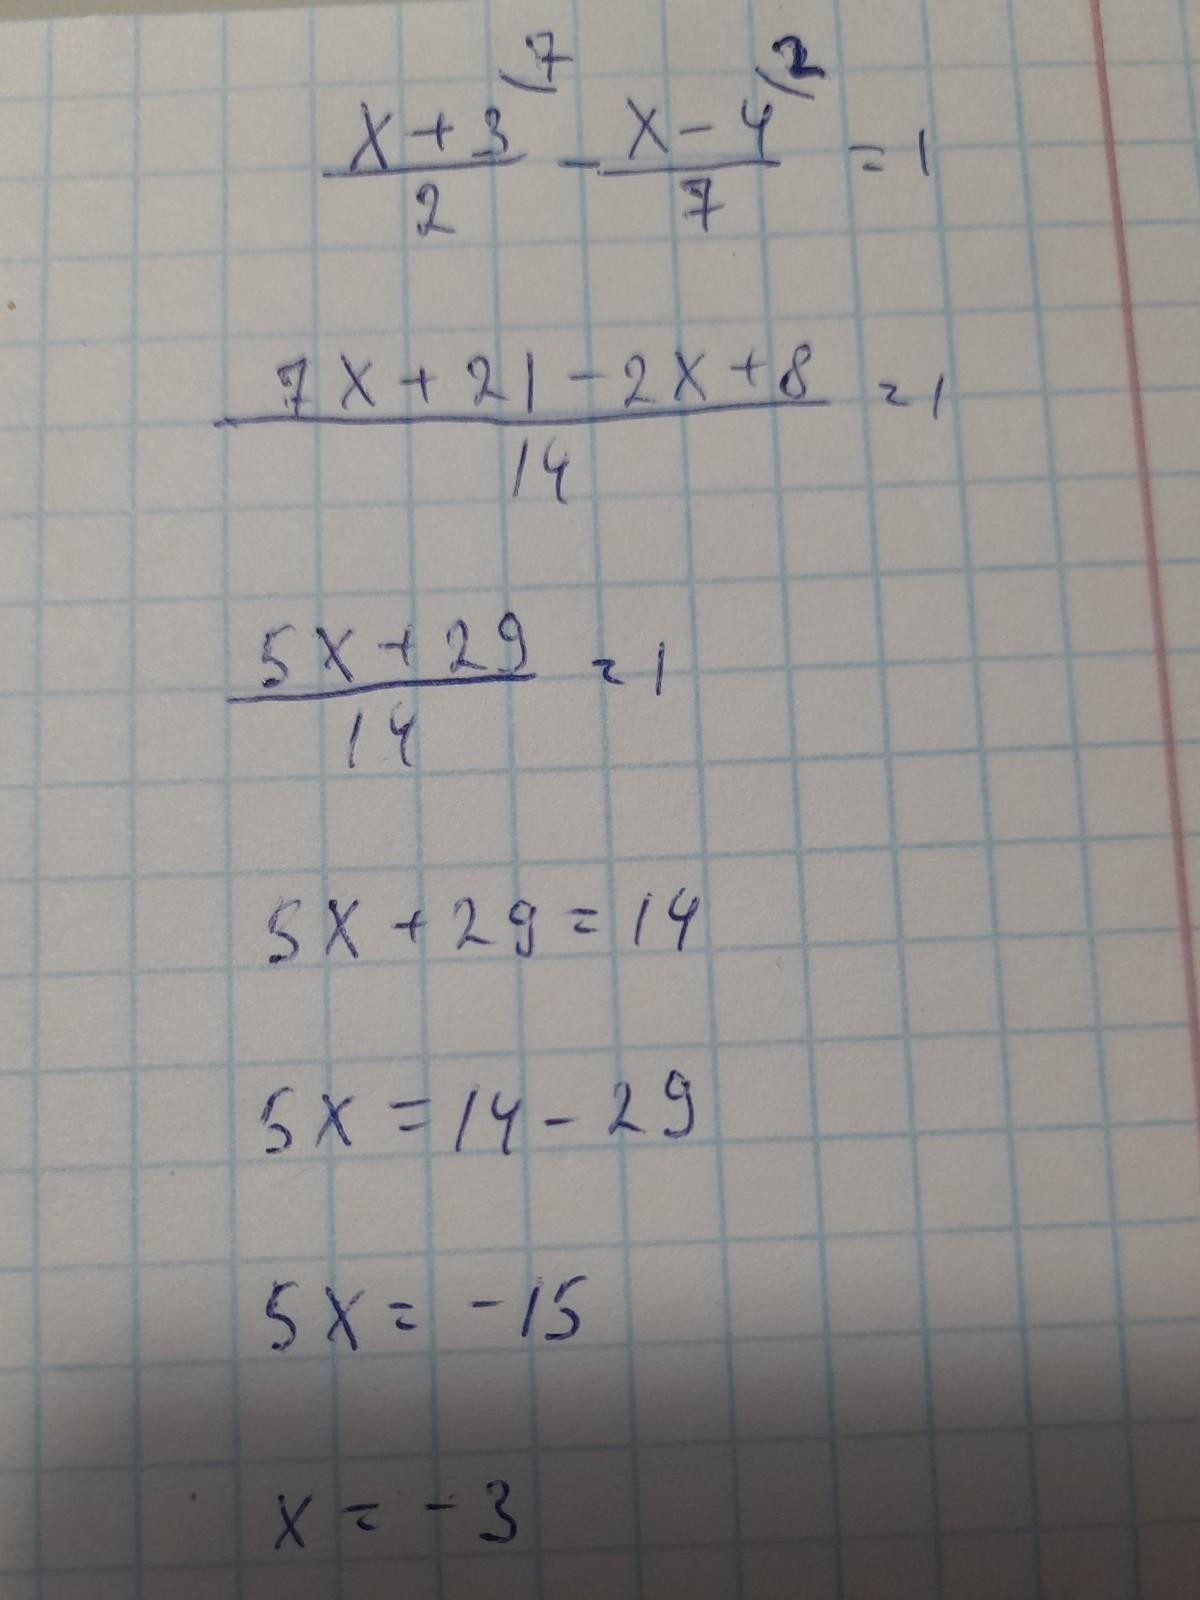 (x + 3)/2 ⁷ - (x - 4)/7 ² = 1
(7x + 21 - 2x + 8)/14 = 1
(5x + 29)/14 = 1
5x + 29 = 14
5x = 14 - 29
5x = -15
x = -3